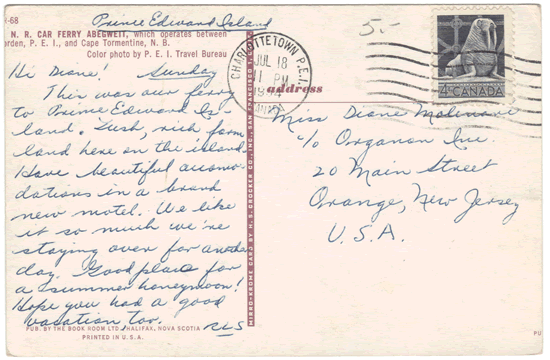 Prince Edward Island
-68
N. R. CAR FERRY ABEGWEIT, which operates between
orden, P. E. I., and Cape Tormentine, N. B.
Color photo by P. E. I. Travel Bureau
Hi Diane! Sunday
This was our ferry
to Prince Edward Is-
land. Lush, rich farm
land here on the island.
Have beautiful accomo-
dations in a brand
new motel. We like
it so much we're
staying over for another
day. Good place for
a summer honeymoon!
Hope you had a good
vacation too. RLS
PUB. BY THE BOOK ROOM LTD., HALIFAX, NOVA SCOTIA
PRINTED IN U.S.A.
MIRRO-KROME CARD BY H. S. CROCKER CO., INC., SAN FRANCISCO
5.-
CHARLOTTETOWN P.E.I.
JUL 18
11 PM
CANADA
4¢ CANADA
address
Miss Diane Molinari
c/o Organon Inc.
20 Main Street
Orange, New Jersey
U.S.A.
PU